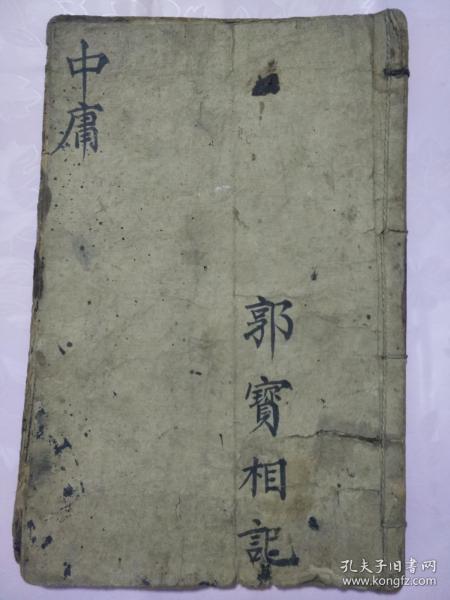 中庸
郭寶相記
孔夫子旧书网
www.kongfz.com